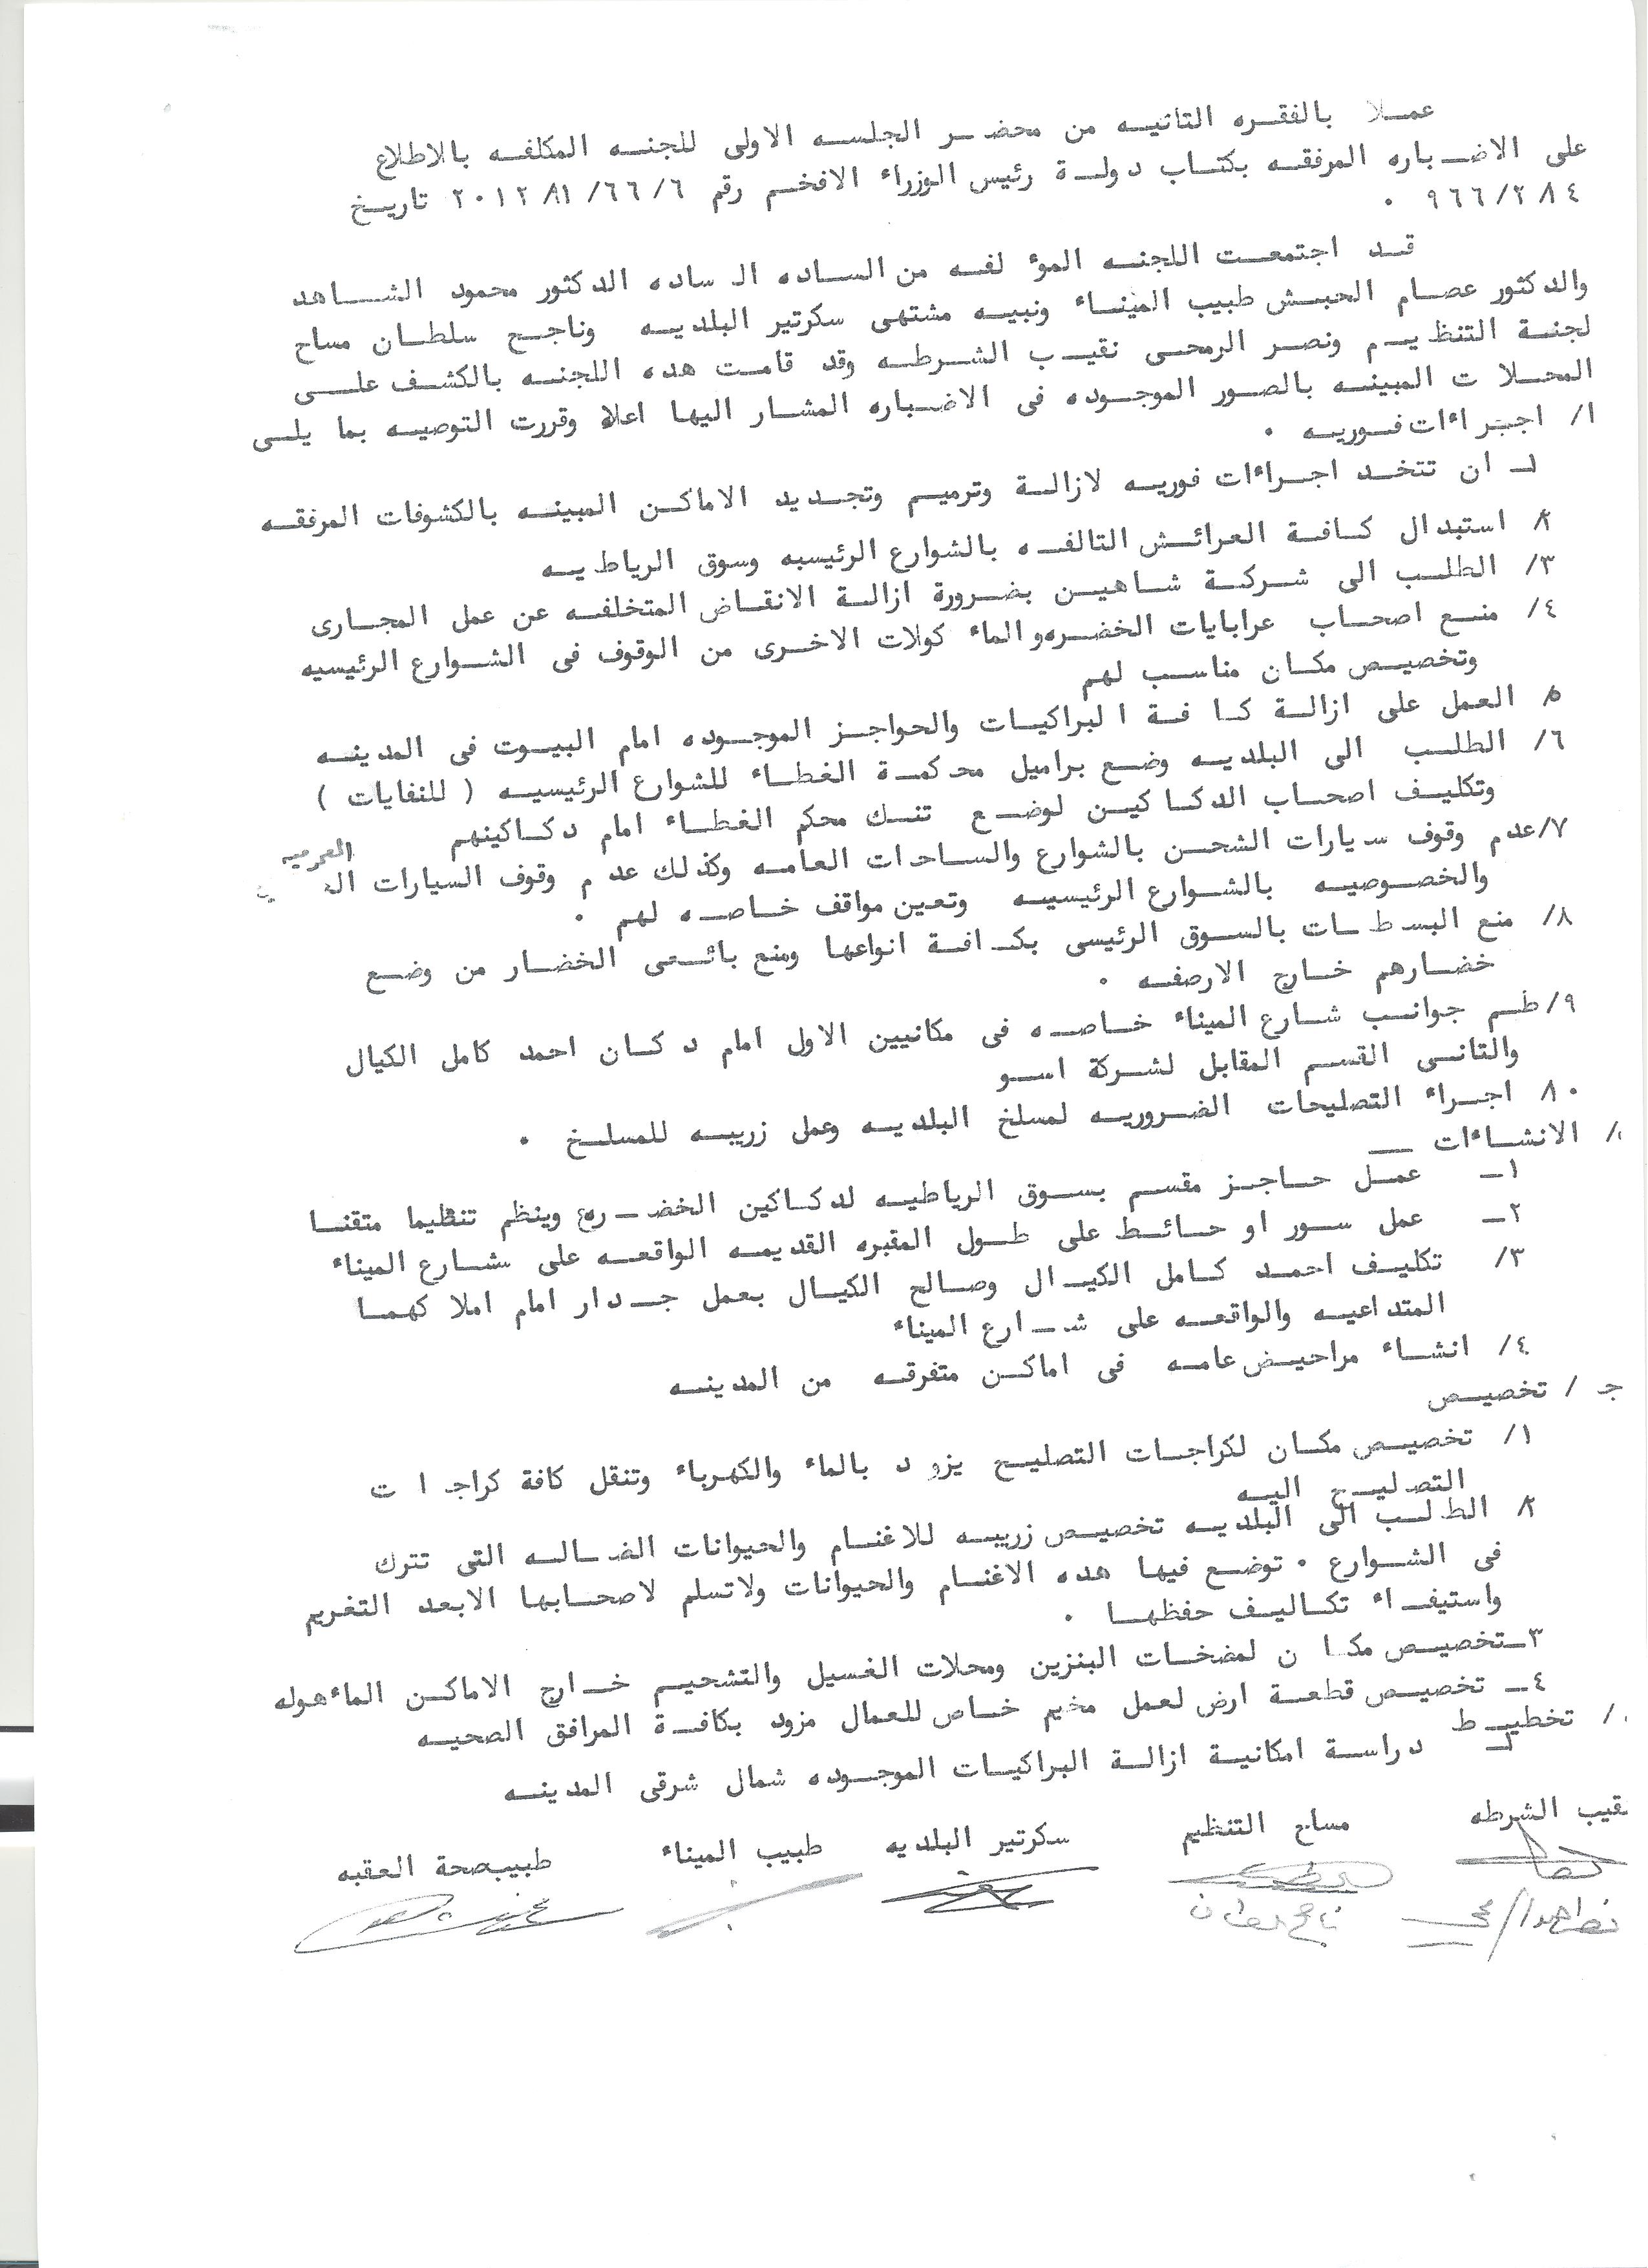 عملا بالفقره الثانيه من محضر الجلسه الاولى للجنه المكلفه بالاطلاع
على الاضباره المرفقه بكتاب دولة رئيس الوزراء الافخم رقم ٦/٦٦/٨١/٢٠١٢ تاريخ
٩٦٦/٢٨٤ .
قد اجتمعت اللجنه المؤلفه من الساده الساده الدكتور محمود الشاهد
والدكتور عصام الحبش طبيب الميناء ونبيه مشتهى سكرتير البلديه وناجح سلطان مساح
لجنة التنظيم ونصر الرمحى نقيب الشرطه وقد قامت هده اللجنه بالكشف على
المحلات المبينه بالصور الموجوده فى الاضباره المشار اليها اعلاه وقررت التوصيه بما يلى
ا/ اجراءات فوريه .
١ـ ان تتخد اجراءات فوريه لازالة وترميم وتجديد الاماكن المبينه بالكشوفات المرفقه
٢/ استبدال كافة العرائش التالفه بالشوارع الرئيسيه وسوق الرياطيه
٣/ الطلب الى شركة شاهين بضرورة ازالة الانقاض المتخلفه عن عمل المجارى
٤/ منع اصحاب عرابايات الخضره والماءكولات الاخرى من الوقوف فى الشوارع الرئيسيه
وتخصيص مكان مناسب لهم
٥/ العمل على ازالة كافة البراكيات والحواجز الموجوده امام البيوت فى المدينه
٦/ الطلب الى البلديه وضع براميل محكمة الغطاء للشوارع الرئيسيه ( للنفايات )
وتكليف اصحاب الدكاكين لوضع تنك محكم الغطاء امام دكاكينهم
٧/عدم وقوف سيارات الشحن بالشوارع والساحات العامه وكذلك عدم وقوف السيارات العموميه
والخصوصيه بالشوارع الرئيسيه وتعين مواقف خاصه لهم .
٨/ منع البسطات بالسوق الرئيسى بكافة انواعها ومنع بائعى الخضار من وضع
خضارهم خارج الارصفه .
٩/طم جوانب شارع الميناء خاصه فى مكانيين الاول امام دكان احمد كامل الكيال
والثانى القسم المقابل لشركة اسو
١٠/ اجراء التصليحات الضروريه لمسلخ البلديه وعمل زريبه للمسلخ .
/ الانشاءات ــ
١ـ عمل حاجز مقسم بسوق الرياطيه لدكاكين الخضره وينظم تنظيما متقنا
٢ـ عمل سور او حائط على طول المقبره القديمه الواقعه على شارع الميناء
٣/ تكليف احمد كامل الكيال وصالح الكيال بعمل جدار امام املاكهما
المتداعيه والواقعه على شارع الميناء
٤/ انشاء مراحيض عامه فى اماكن متفرقه من المدينه
جـ / تخصيص
١/ تخصيص مكان لكراجات التصليح يزود بالماء والكهرباء وتنقل كافة كراجات
التصليح اليه
٢/ الطلب الى البلديه تخصيص زريبه للاغنام والحيوانات الضاله التى تترك
فى الشوارع . توضع فيها هده الاغنام والحيوانات ولاتسلم لاصحابها الابعد التغريم
واستيفاء تكاليف حفظها .
٣ـ تخصيص مكان لمضخات البنزين ومحلات الغسيل والتشحيم خارج الاماكن الماءهوله
٤ـ تخصيص قطعة ارض لعمل مخيم خاص للعمال مزود بكافة المرافق الصحيه
/ تخطيط
١ـ دراسة امكانية ازالة البراكيات الموجوده شمال شرقى المدينه
نقيب الشرطه مساح التنظيم سكرتير البلديه طبيب الميناء طبيب صحة العقبه
ناجح سلطان